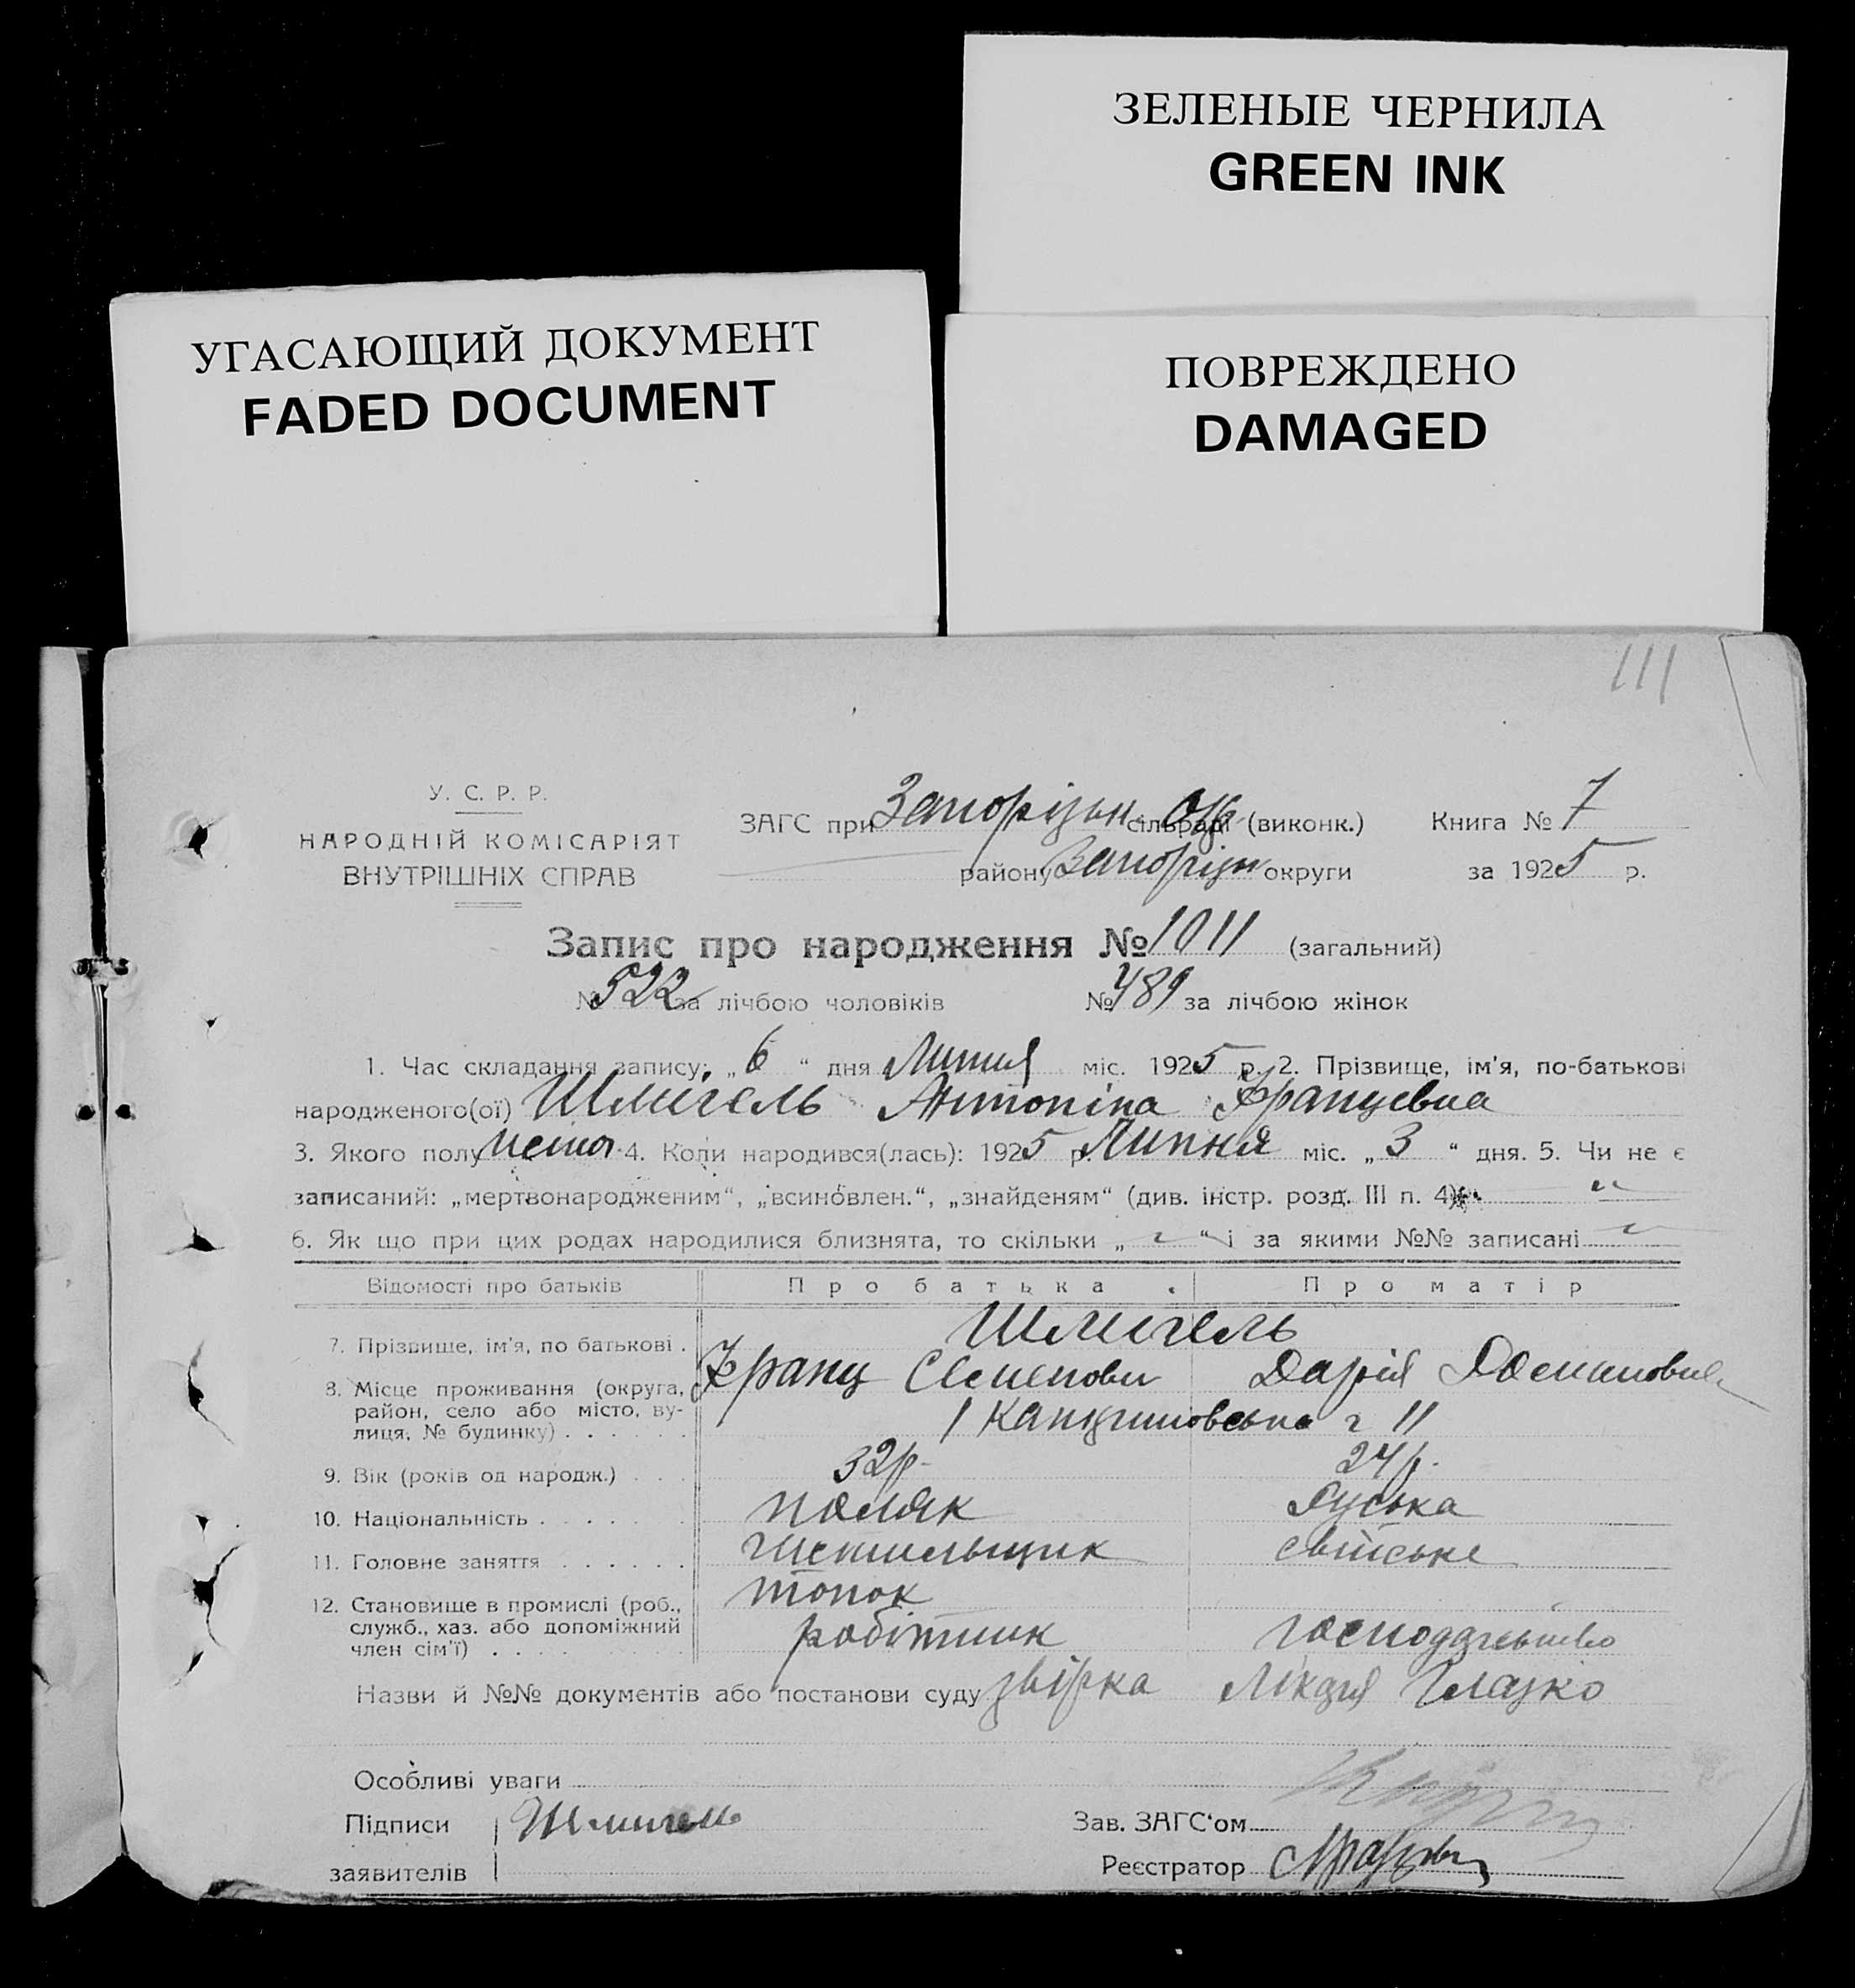 ЗЕЛЕНЫЕ ЧЕРНИЛА
GREEN INK
УГАСАЮЩИЙ ДОКУМЕНТ
FADED DOCUMENT
ПОВРЕЖДЕНО
DAMAGED
111
У. С. Р. Р.
НАРОДНІЙ КОМІСАРІЯТ
ВНУТРІШНІХ СПРАВ
ЗАГС при Запорізьк. сільраді (виконк.) Книга № 7
району Запорізьк округи за 1925 р.
Запис про народження № 1011 (загальний)
№ 522 за лічбою чоловіків № 489 за лічбою жінок
1. Час складання запису: „6“ дня Липня міс. 1925 р. 2. Прізвище, ім'я, по-батькові
народженого(ої) Шмігель Антоніна Францевна
3. Якого полу 4. Коли народився(лась): 1925 р. Липня міс. „3“ дня. 5. Чи не є
записаний: „мертвонародженим“, „всиновлен.“, „знайденям“ (див. інстр. розд. III п. 4)
6. Як що при цих родах народилися близнята, то скільки „ “ і за якими №№ записані
Відомості про батьків Про батька Про матір
7. Прізвище, ім'я, по батькові . Шмигель
Франц Семенович Дарія
8. Місце проживання (округа, район, село або місто, вулиця, № будинку) 11
9. Вік (років од народж.) 32р. 24р.
10. Національність поляк Руська
11. Головне заняття чистильщик свійське
топок
12. Становище в промислі (роб., служб., хаз. або допоміжний член сім'ї) робітник господарство
Назви й №№ документів або постанови суду звірка Глазко
Особливі уваги
Підписи Шмигель Зав. ЗАГС'ом
заявителів Реєстратор